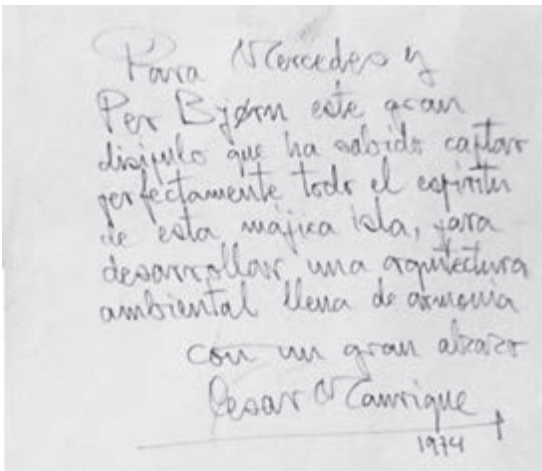 Para Mercedes y
Per Bjørn este gran
disipulo que ha sabido captar
perfectamente todo el espiritu
de esta majica isla, para
desarrollar una arquitectura
ambiental llena de armonia
con un gran abrazo
Cesar Manrique
1974